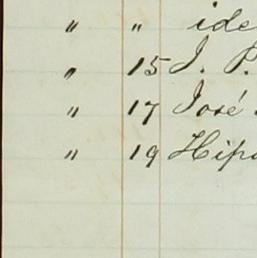 " " ide
" 15 J. P.
" 17 José
" 19 Hipo